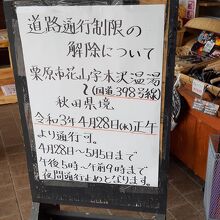 道路通行制限の
解除について
栗原市花山字本沢温湯
～(国道398号線)
秋田県境
令和3年4月28日(水)正午
より通行可。
4月28日～5月5日まで
午後5時～午前9時まで
夜間通行止めとなります。